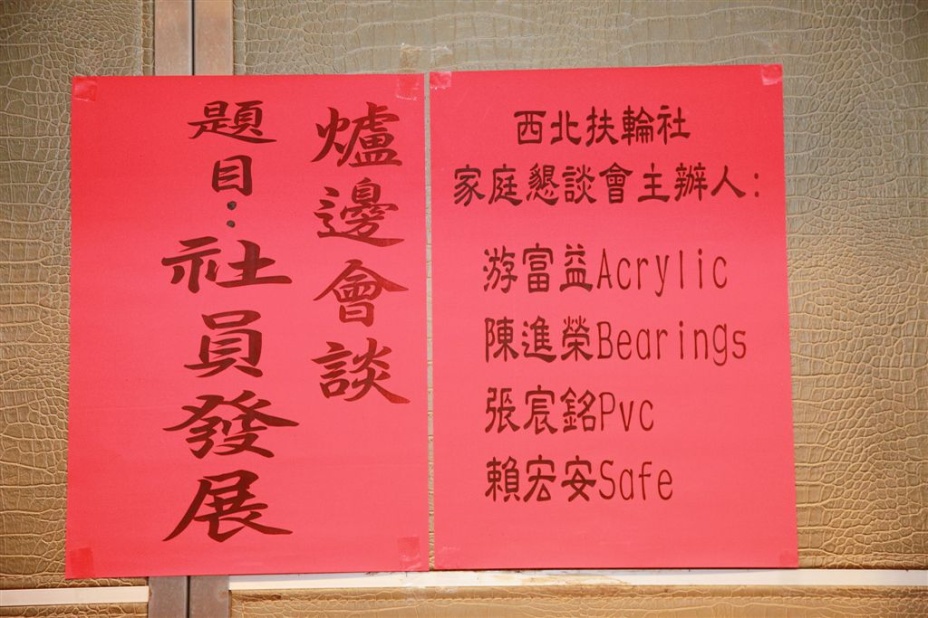 爐邊會談
題目：社員發展
西北扶輪社
家庭懇談會主辦人：
游富益Acrylic
陳進榮Bearings
張宸銘Pvc
賴宏安Safe